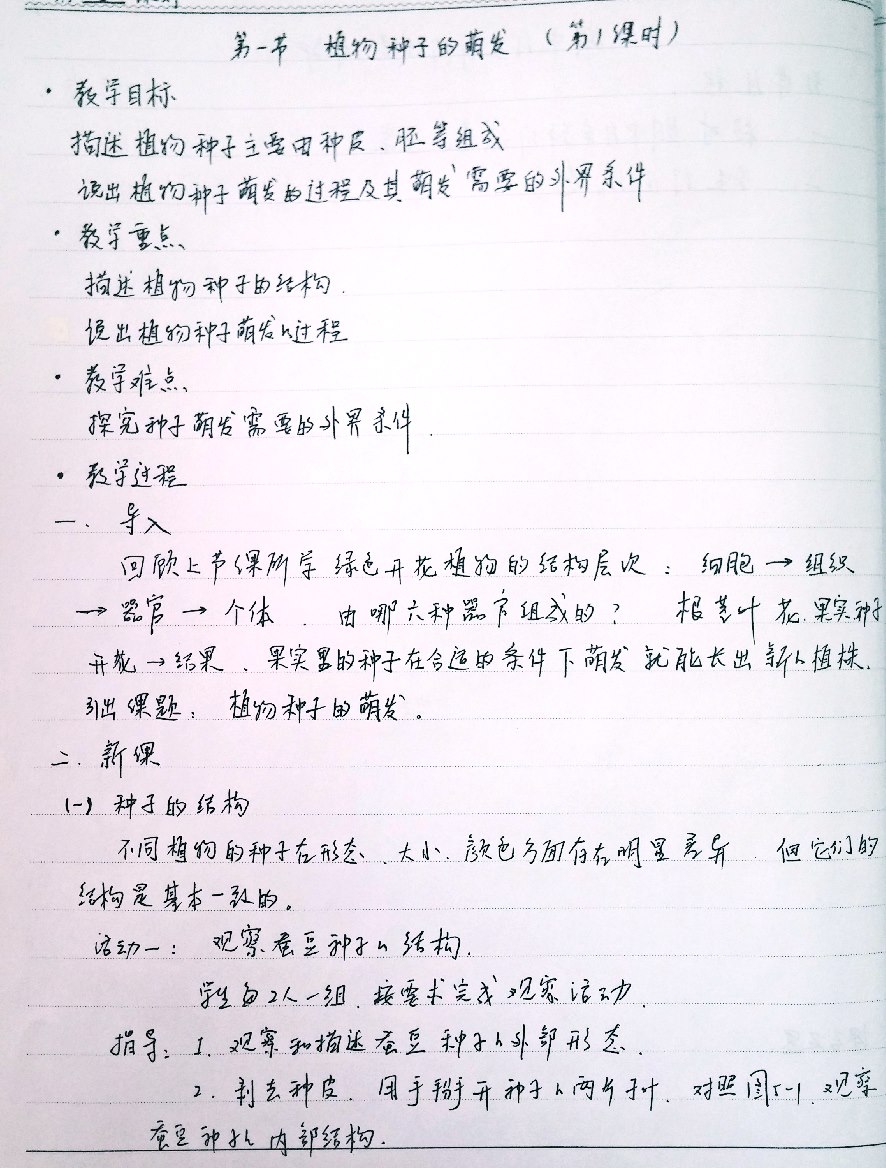 第一节 植物种子的萌发 (第1课时)
· 教学目标
描述植物种子主要由种皮、胚等组成
说出植物种子萌发的过程及其萌发需要的外界条件
· 教学重点
描述植物种子的结构.
说出植物种子萌发的过程
· 教学难点
探究种子萌发需要的外界条件.
· 教学过程
一. 导入
回顾上节课所学绿色开花植物的结构层次: 细胞→组织
→器官→个体. 由哪六种器官组成的? 根茎叶花.果实种子
开花→结果. 果实里的种子在合适的条件下萌发就能长出新的植株.
引出课题: 植物种子的萌发。
二. 新课
(一) 种子的结构
不同植物的种子在形态、大小、颜色方面存在明显差异. 但它们的
结构是基本一致的。
活动一: 观察蚕豆种子的结构.
学生每2人一组. 按要求完成观察活动.
指导: 1. 观察和描述蚕豆种子的外部形态.
2. 剥去种皮. 用手掰开种子的两片子叶. 对照图5-1. 观察
蚕豆种子的内部结构.